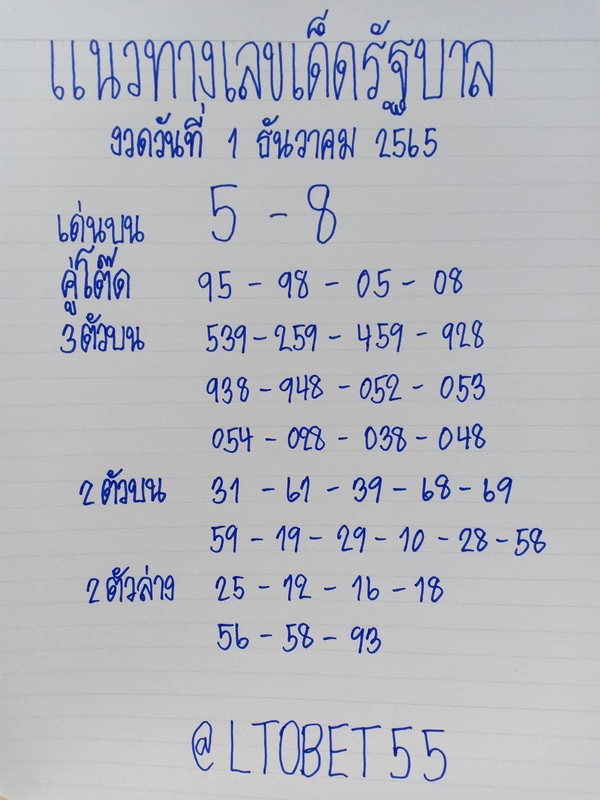 แนวทางเลขเด็ดรัฐบาล
งวดวันที่ 1 ธันวาคม 2565
เด่นบน 5 - 8
คู่โต๊ด 95 - 98 - 05 - 08
3ตัวบน 539 - 259 - 459 - 928
938 - 948 - 052 - 053
054 - 028 - 038 - 048
2ตัวบน 31 - 61 - 39 - 68 - 69
59 - 19 - 29 - 10 - 28 - 58
2ตัวล่าง 25 - 12 - 16 - 18
56 - 58 - 93
@LTOBET55